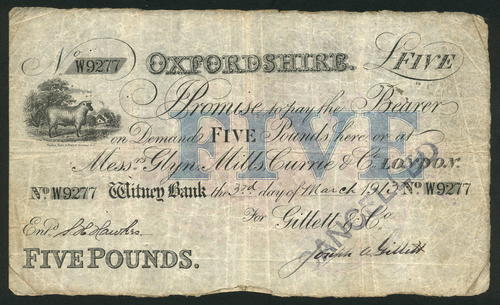 No W9277 OXFORDSHIRE. £FIVE
I Promise to pay the Bearer
on Demand FIVE Pounds here or at
Messrs. Glyn, Mills, Currie & Co. LONDON.
FIVE
No W9277 Witney Bank the 3rd day of March 1913 No W9277
For Gillett & Co.
CANCELLED
Entd. Joseph A. Gillett
FIVE POUNDS.